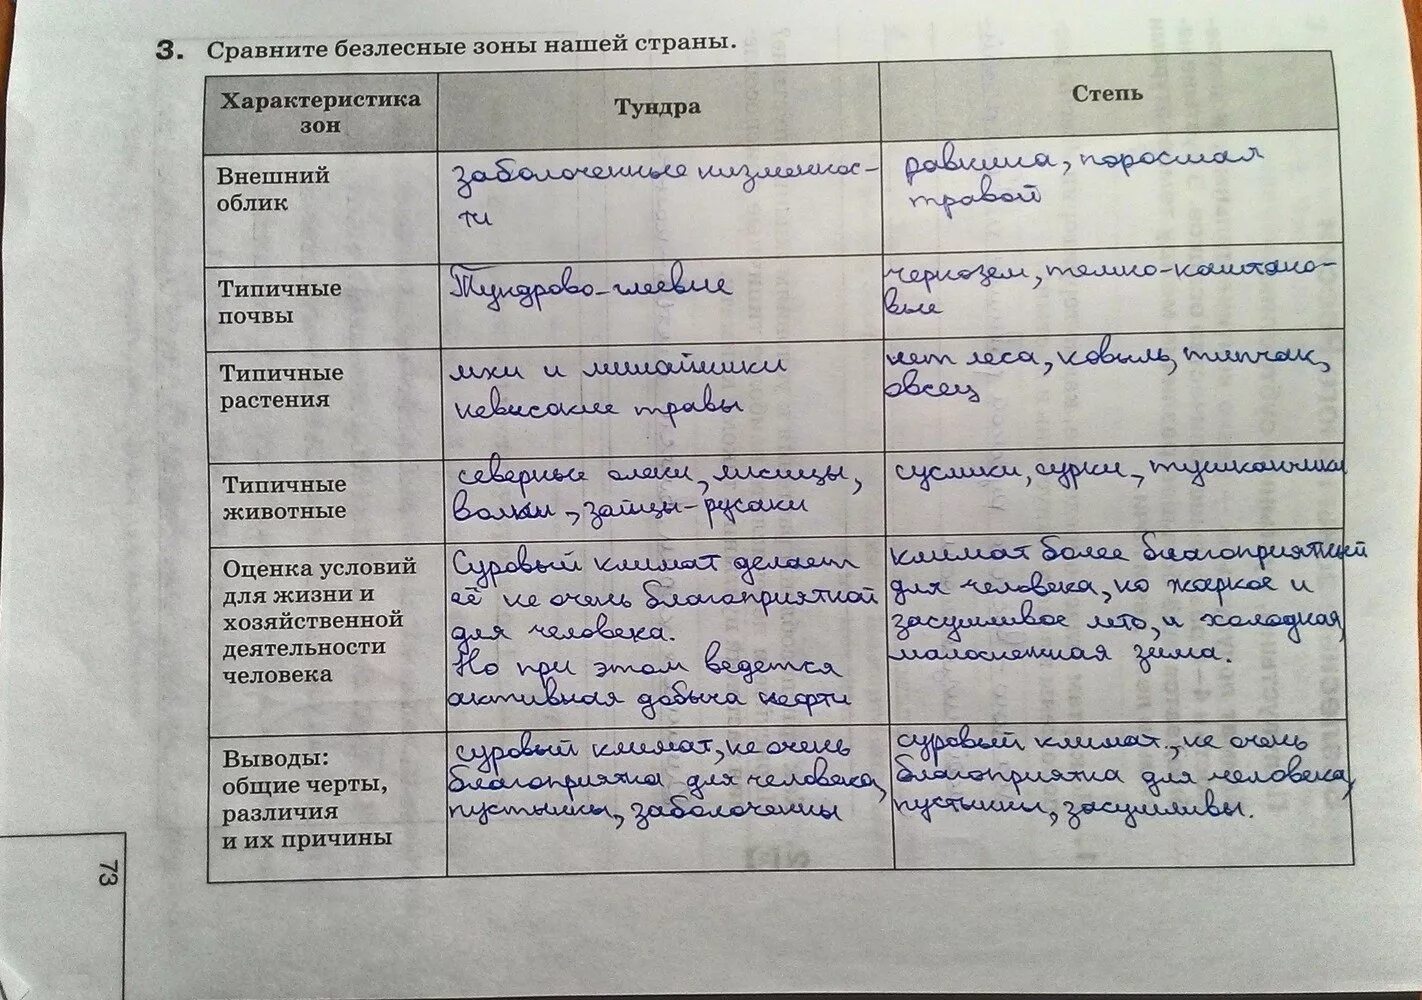 3. Сравните безлесные зоны нашей страны.
Характеристика
зон
Тундра
Степь
Внешний
облик
заболоченные низменнос-
ти
равнина, поросшая
травой
Типичные
почвы
Тундрово-глеевые
чернозем, темно-каштано-
вые
Типичные
растения
мхи и лишайники
невысокие травы
нет леса, ковыль, типчак,
овсец
Типичные
животные
северные олени, лисицы,
волки, зайцы-русаки
суслики, сурки, тушканчики
Оценка условий
для жизни и
хозяйственной
деятельности
человека
Суровый климат делает
её не очень благоприятной
для человека.
Но при этом ведется
активная добыча нефти
климат более благоприятный
для человека, но жаркое и
засушливое лето, и холодная,
малоснежная зима.
Выводы:
общие черты,
различия
и их причины
суровый климат, не очень
благоприятна для человека,
пустынны, заболочены
суровый климат, не очень
благоприятна для человека,
пустынны, засушливы.
73